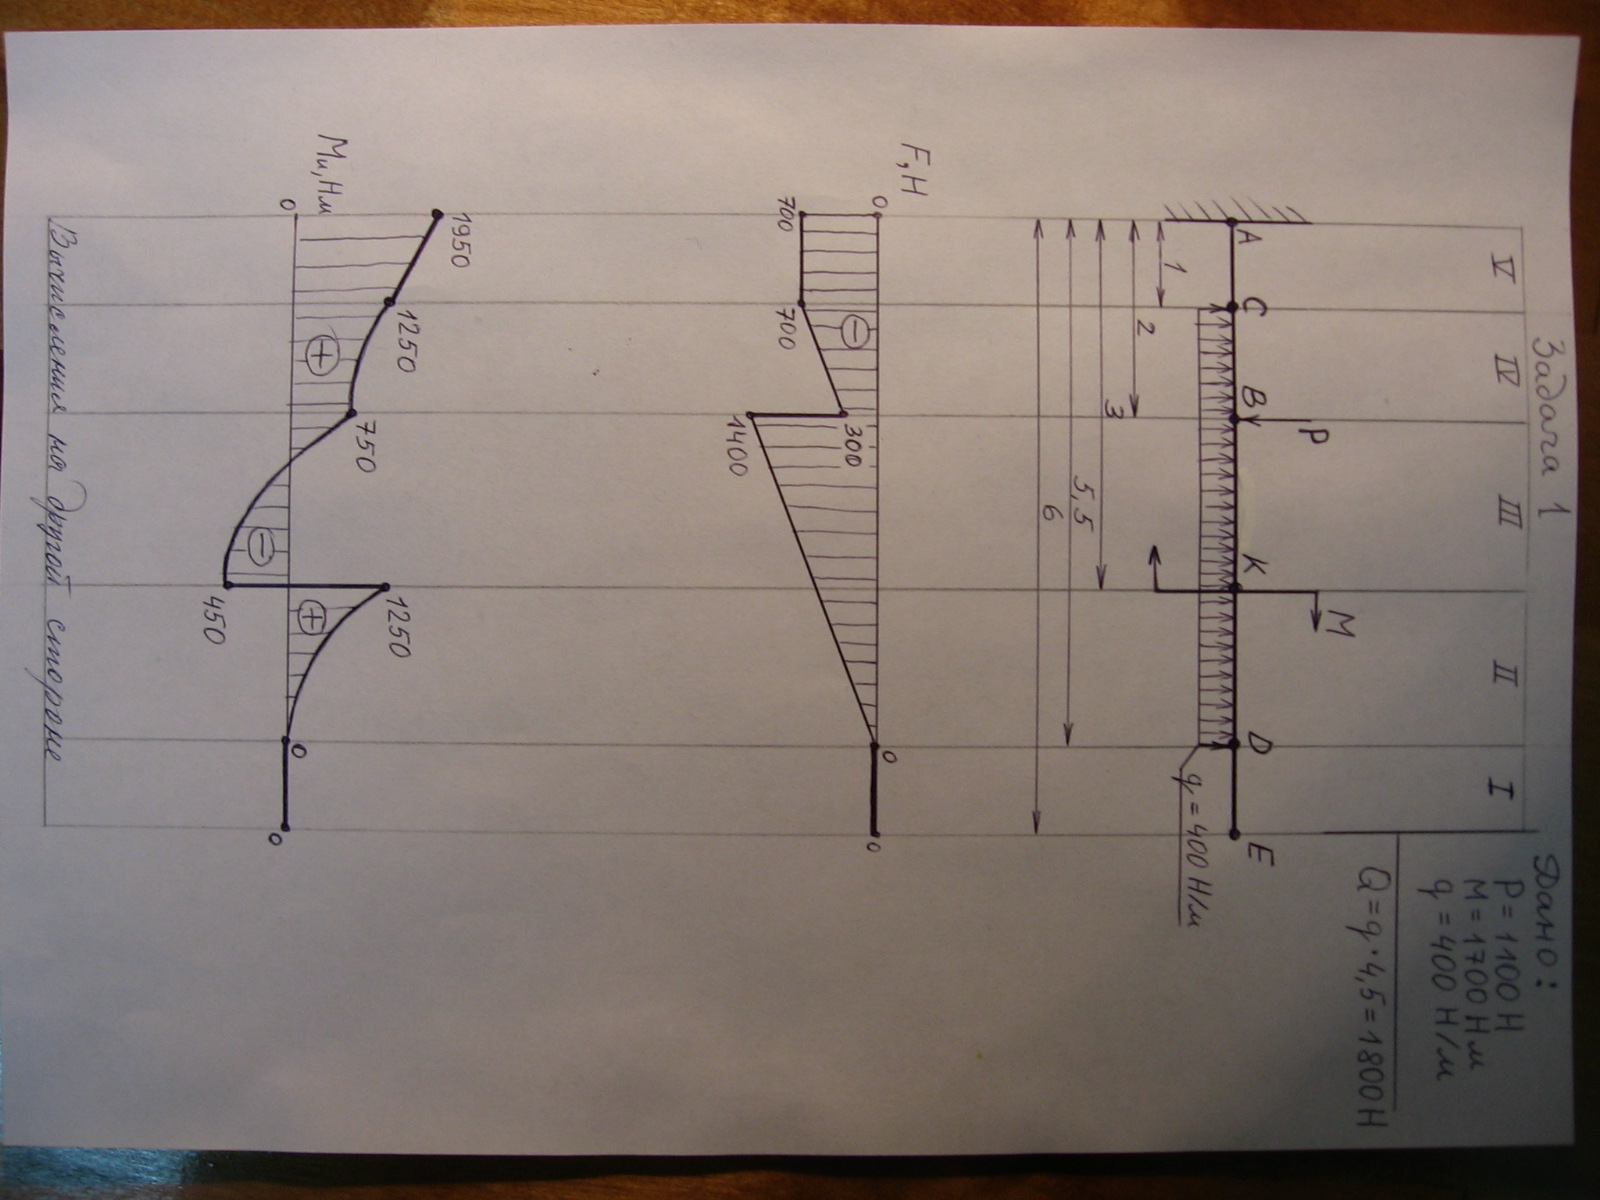 Задача 1
Дано:
P = 1100 Н
М = 1700 Нм
q = 400 Н/м
Q = q · 4,5 = 1800 Н
V IV III II I
P M
A C B K D E
q = 400 Н/м
1
2
3
5,5
6
F, Н
0 0 0
700 700 300 1400
−
Mи, Нм
1950 1250 750 450 1250
0 0 0
+ − +
Вычисления на другой стороне